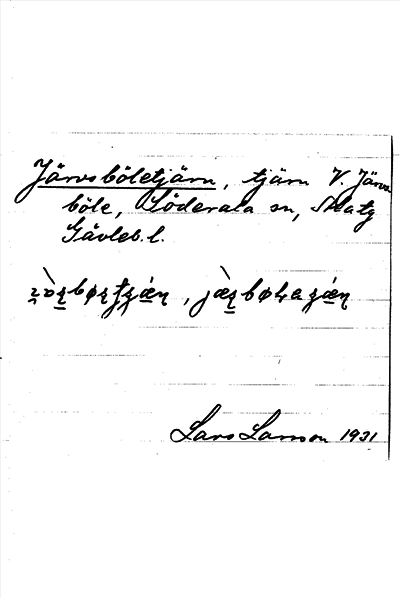 Järvsböletjärn, tjärn V. Järvs
böle, Söderala sn, Ala tg
Gävleb. l.
Lars Larsson 1931